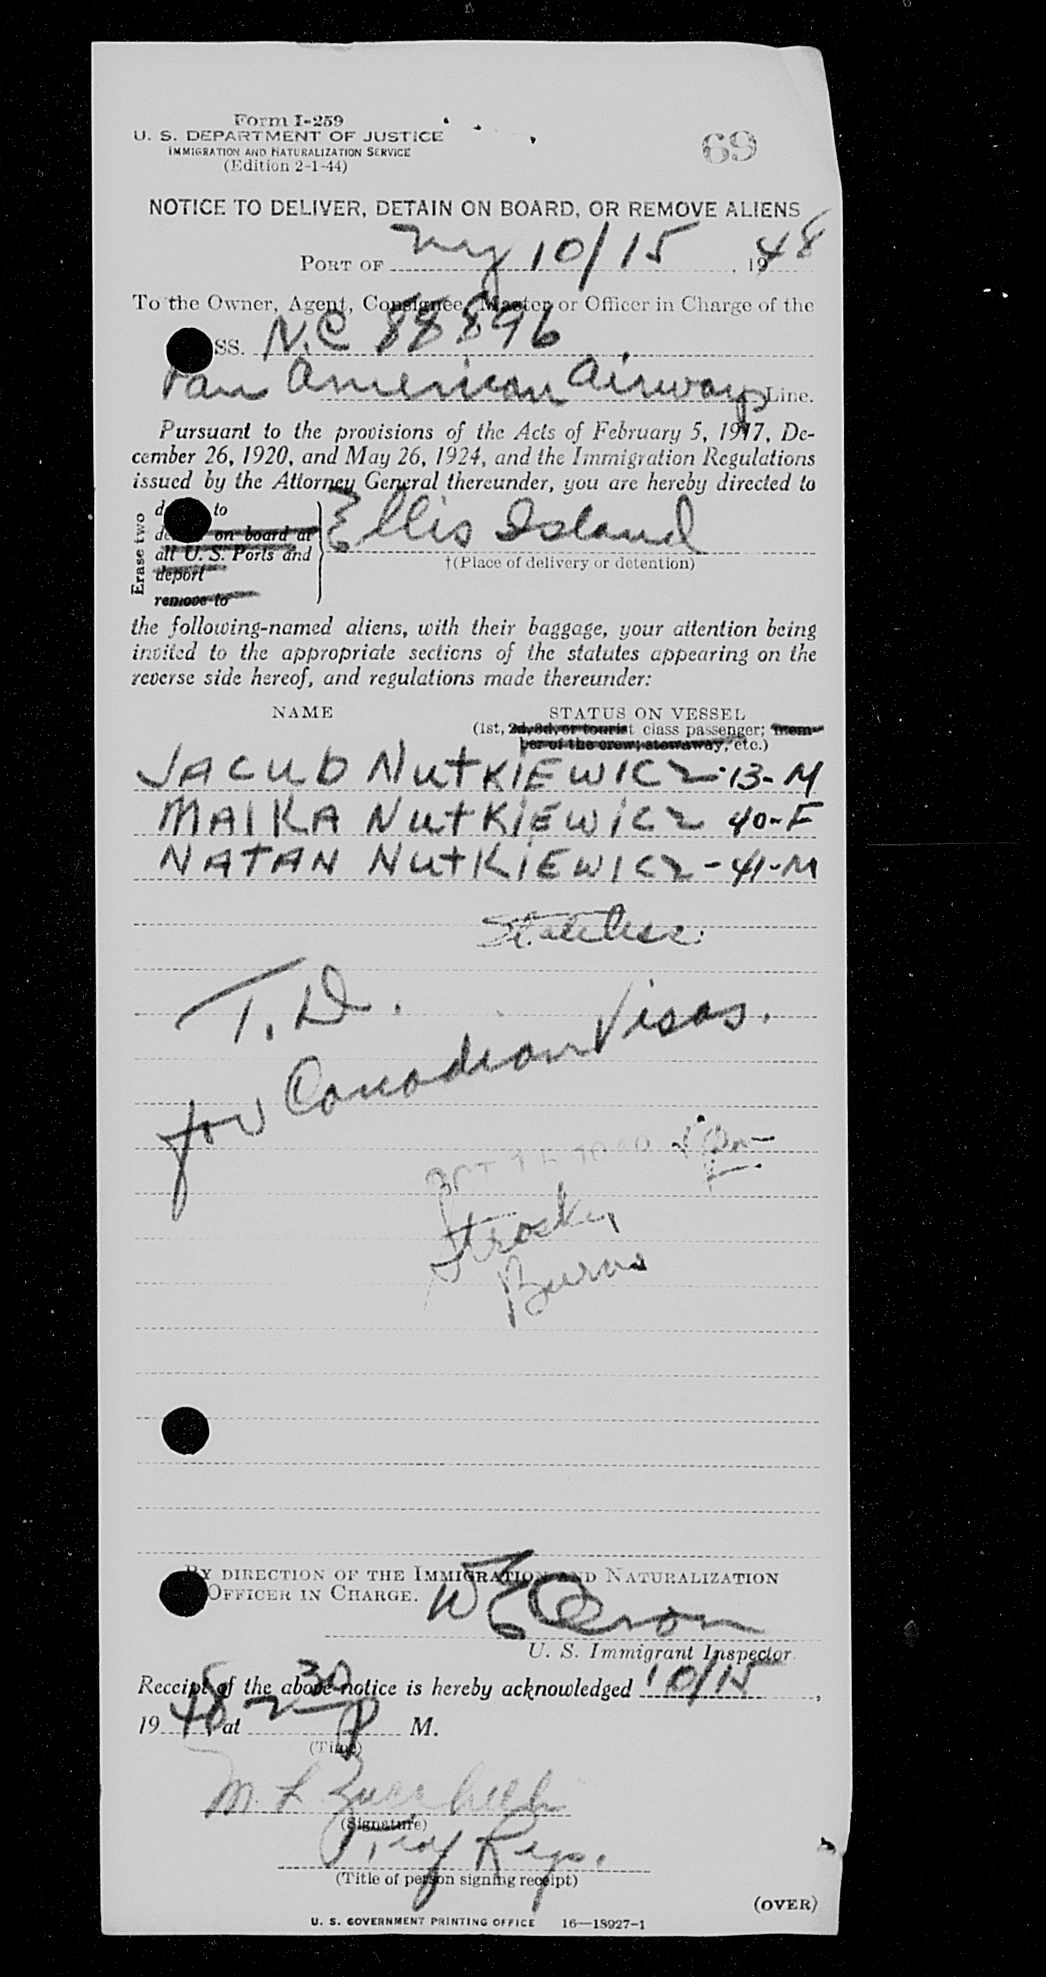 Form I-259
U. S. DEPARTMENT OF JUSTICE
IMMIGRATION AND NATURALIZATION SERVICE
(Edition 2-1-44)
69
NOTICE TO DELIVER, DETAIN ON BOARD, OR REMOVE ALIENS
PORT OF NY 10/15, 1948
To the Owner, Agent, Consignee, Master or Officer in Charge of the
SS. N.C 88896
Pan American Airways Line.
Pursuant to the provisions of the Acts of February 5, 1917, De-
cember 26, 1920, and May 26, 1924, and the Immigration Regulations
issued by the Attorney General thereunder, you are hereby directed to
Erase two
to
on board at
all U. S. Ports and
deport
remove to
Ellis Island
†(Place of delivery or detention)
the following-named aliens, with their baggage, your attention being
invited to the appropriate sections of the statutes appearing on the
reverse side hereof, and regulations made thereunder:
NAME STATUS ON VESSEL
(1st, 2d, 3d, or tourist class passenger; mem-
ber of the crew; stowaway, etc.)
JACUB NUTKIEWICZ-13-M
MAIKA NUTKIEWICZ 40-F
NATAN NUTKIEWICZ-41-M
Stateless
T.D.
for Canadian Visas.
Burns
BY DIRECTION OF THE IMMIGRATION AND NATURALIZATION
OFFICER IN CHARGE.
U. S. Immigrant Inspector.
Receipt of the above notice is hereby acknowledged 10/15,
1948, at 2 30 P M.
(Time)
(Signature)
(Title of person signing receipt)
(OVER)
U. S. GOVERNMENT PRINTING OFFICE 16—18927-1